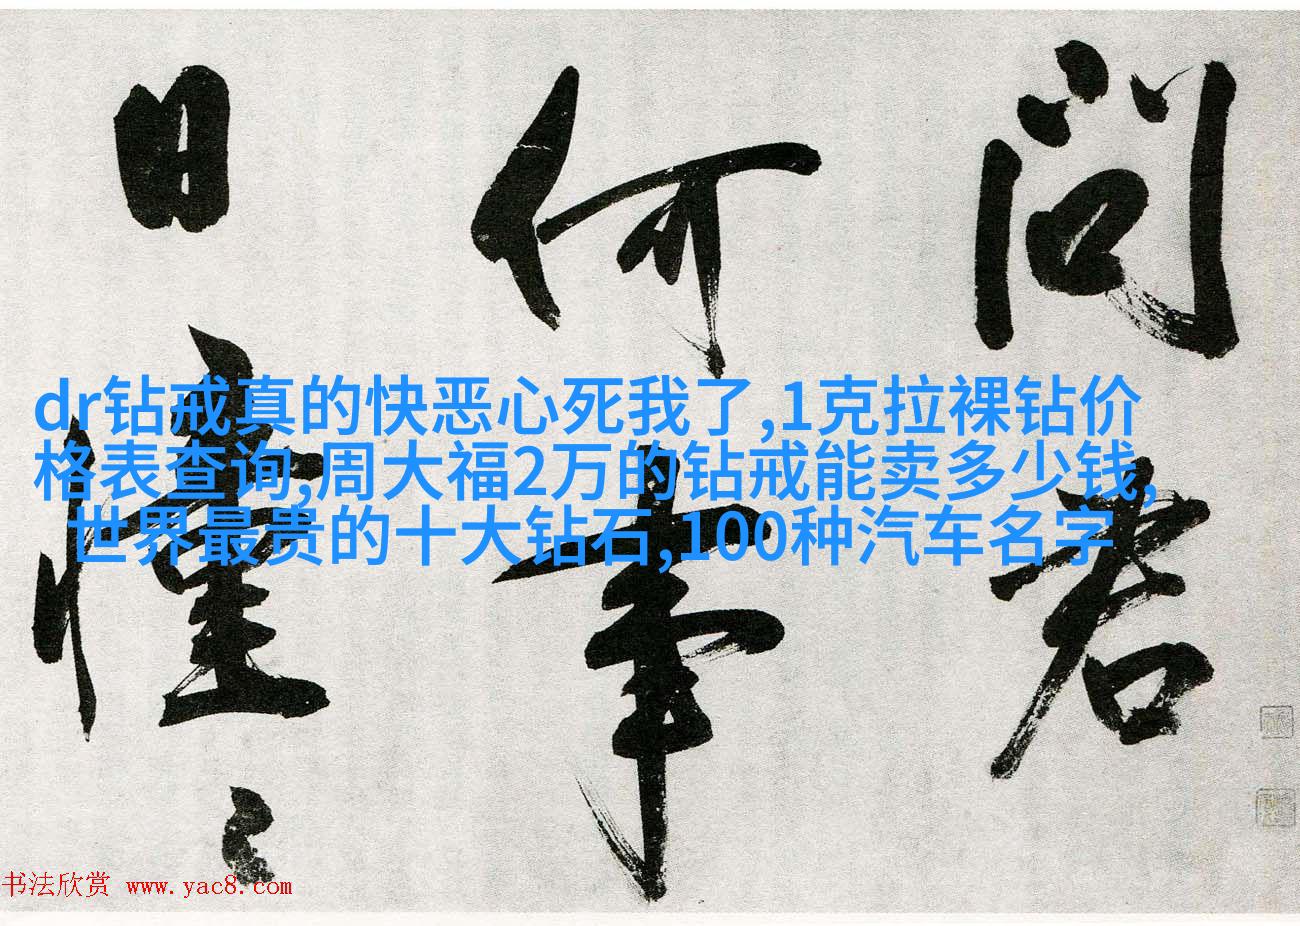 问君
何事
日憧々
dr钻戒真的快恶心死我了,1克拉裸钻价
格表查询,周大福2万的钻戒能卖多少钱,
世界最贵的十大钻石,100种汽车名字
书法欣赏 www.yac8.com